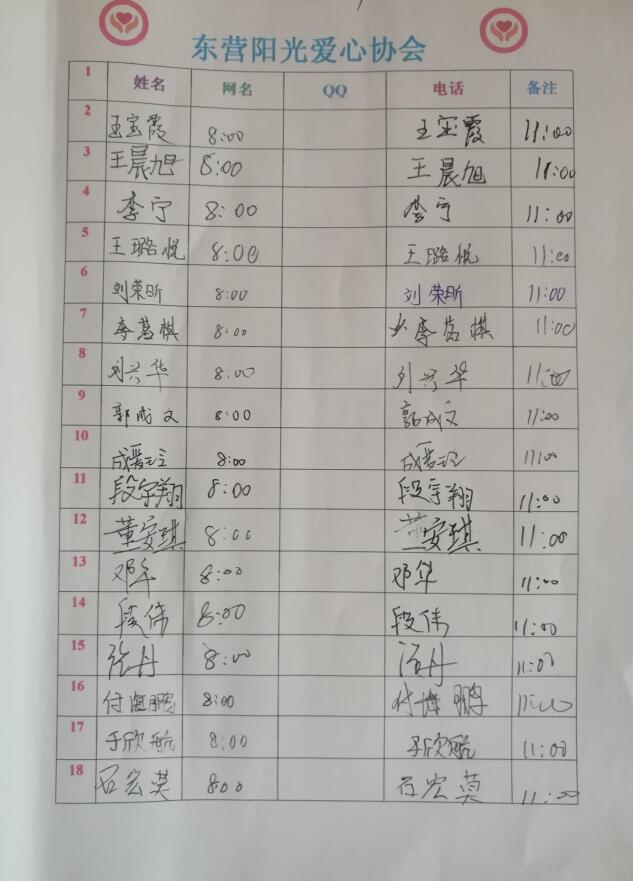 东营阳光爱心协会
1 姓名 网名 QQ 电话 备注
2 王宝霞 8:00 王宝霞 11:00
3 王晨旭 8:00 王晨旭 11:00
4 李宁 8:00 李宁 11:00
5 王璐悦 8:00 王璐悦 11:00
6 刘荣昕 8:00 刘荣昕 11:00
7 李茗棋 8:00 李茗棋 11:00
8 刘兴华 8:00 刘兴华 11:00
9 郭成文 8:00 郭成文 11:00
10 8:00 11:00
11 段宇翔 8:00 段宇翔 11:00
12 董安琪 8:00 董安琪 11:00
13 邓华 8:00 邓华 11:00
14 段伟 8:00 段伟 11:00
15 张丹 8:00 11:00
16 付海鹏 8:00 付海鹏 11:00
17 于欣航 8:00 于欣航 11:00
18 石宏莫 8:00 石宏莫 11:00